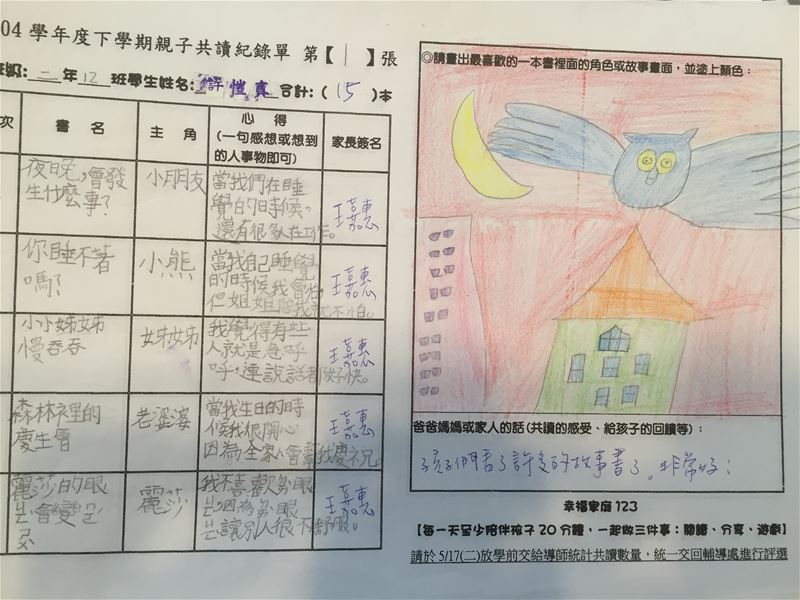 04 學年度下學期親子共讀紀錄單 第【1】張
班級：二年12班學生姓名：許愷真 合計：（15）本
次
書 名
主 角
心 得
（一句感想或想到
的人事物即可）
家長簽名
夜晚，會發
生什麼事？
小朋友
當我們在睡
覺的時候，
還有很多人在工作。
王嘉惠
你睡不著
嗎？
小熊
當我自己睡覺
的時候我會怕，
但姐姐陪我就不怕。
王嘉惠
小小姊姊
慢吞吞
姊姊
我覺得有些
人就是急呼
呼，連說話都好快。
王嘉惠
森林裡的
慶生會
老婆婆
當我生日的時
候我很開心
因為全家人會幫我慶祝。
王嘉惠
麗莎的眼
會變
麗莎
我不喜歡
因為
讓別人很不舒服。
王嘉惠
◎請畫出最喜歡的一本書裡面的角色或故事畫面，並塗上顏色：
爸爸媽媽或家人的話（共讀的感受、給孩子的回饋等）：
孩子們看了許多的故事書了。非常好！
幸福家庭 123
【每一天至少陪伴孩子 20 分鐘，一起做三件事：閱讀、分享、遊戲】
請於 5/17(二)放學前交給導師統計共讀數量，統一交回輔導處進行評選